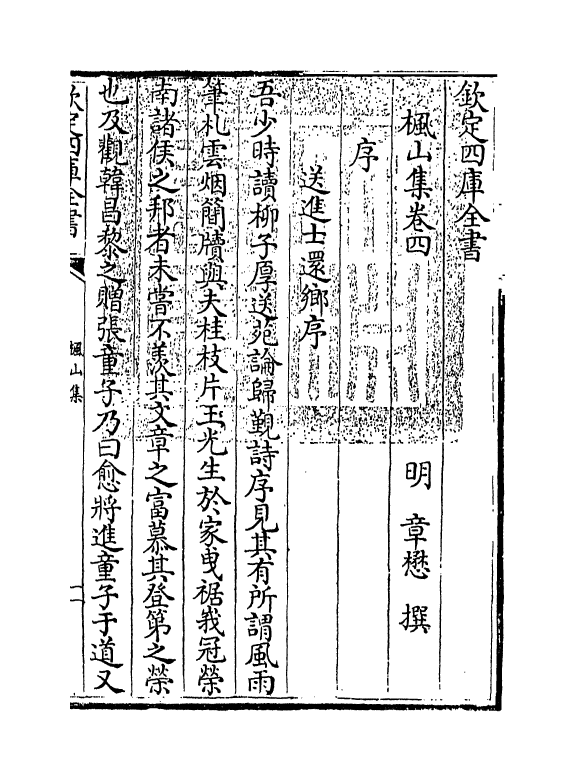 欽定四庫全書
楓山集卷四
明 章懋 撰
序
送進士還鄉序
吾少時讀柳子厚送苑論歸覲詩序見其有所謂風雨
筆札雲烟簡牘與夫桂枝片玉光生於家曳裾峩冠榮
南諸侯之邦者未嘗不羨其文章之富慕其登第之榮
也及觀韓昌黎之贈張童子乃曰愈將進童子于道又
欽定四庫全書
楓山集
一